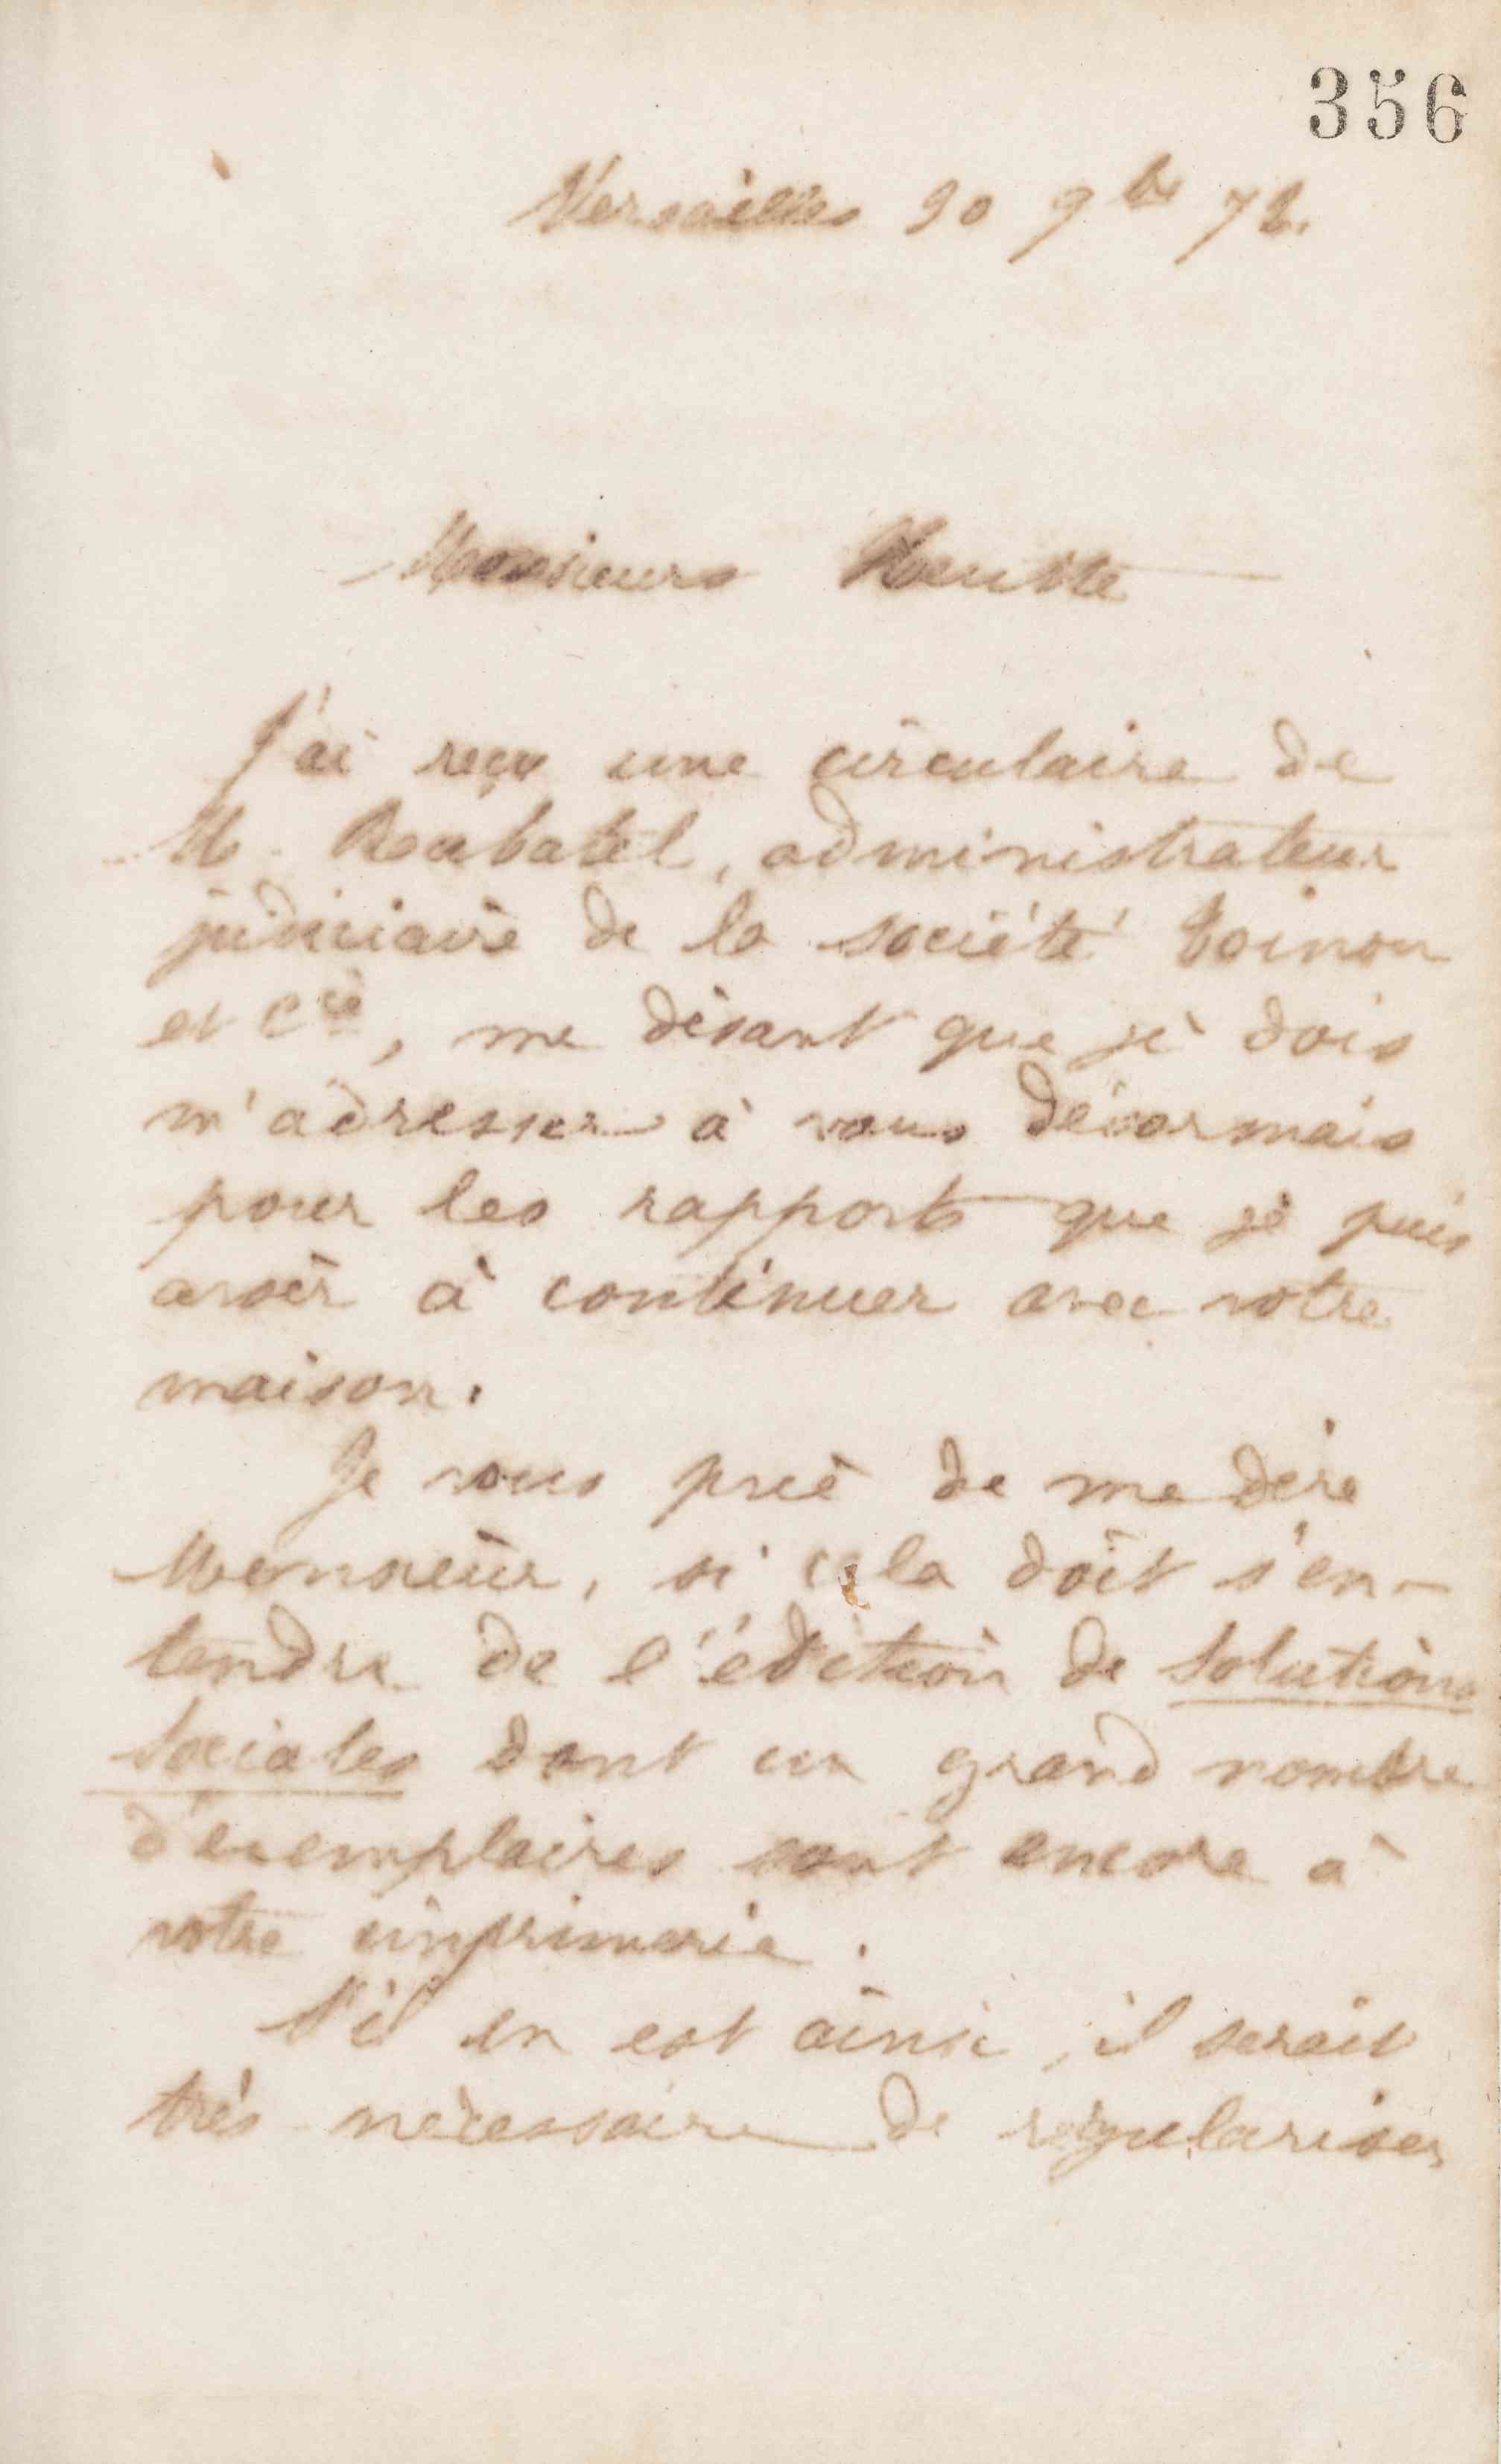 356
Versailles 30 9bre 72.
Monsieur Heutte
J'ai reçu une circulaire de
M. Rabatel, administrateur
judiciaire de la société Toinon
et Cie, me disant que je dois
m'adresser à vous désormais
pour les rapports que je puis
avoir à continuer avec votre
maison.
Je vous prie de me dire
Monsieur, si cela doit s'en-
tendre de l'édition de Solutions
Sociales dont un grand nombre
d'exemplaires sont encore à
votre imprimerie.
S'il en est ainsi, il serait
très nécessaire de régulariser